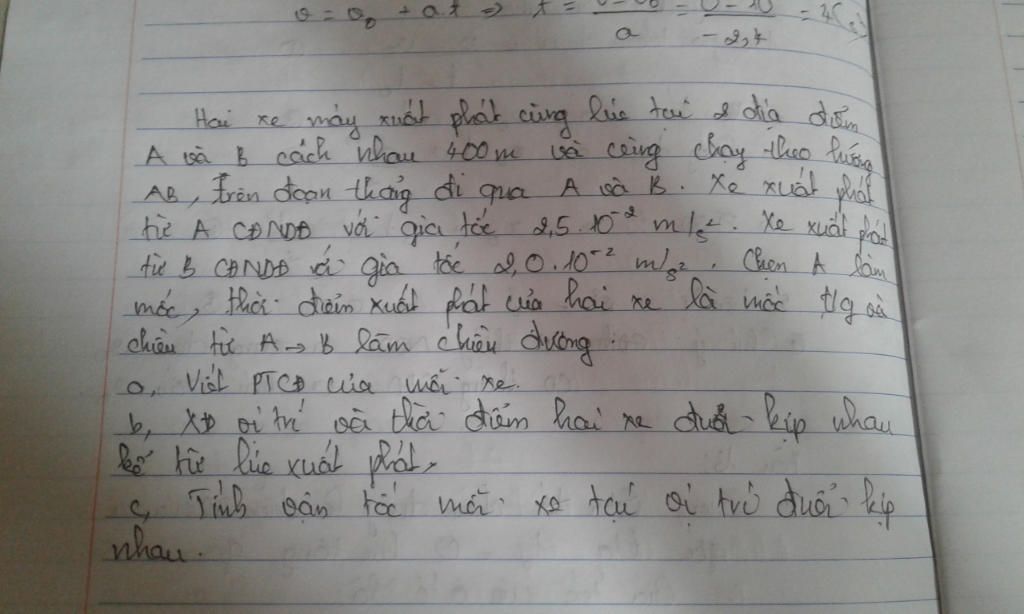 v = v₀ + a.t ⇒ t = (v - v₀)/a = (0 - 10)/(-2,4) =
Hai xe máy xuất phát cùng lúc tại 2 địa điểm
A và B cách nhau 400m và cùng chạy theo hướng
AB, trên đoạn thẳng đi qua A và B. Xe xuất phát
từ A CĐNDĐ với gia tốc 2,5.10⁻² m/s². Xe xuất phát
từ B CĐNDĐ với gia tốc 2,0.10⁻² m/s². Chọn A làm
mốc, thời điểm xuất phát của hai xe là mốc t/g và
chiều từ A → B làm chiều dương.
a, Viết PTCĐ của mỗi xe.
b, XĐ vị trí và thời điểm hai xe đuổi kịp nhau
kể từ lúc xuất phát,
c, Tính vận tốc mỗi xe tại vị trí đuổi kịp
nhau.